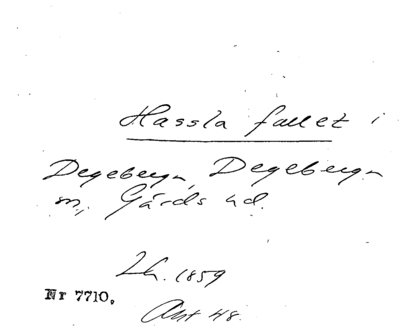 Hassla fallet i
Degeberga, Degeberga
sn, Gärds hd.
Lh. 1859
Nr 7710.
Ant 48.